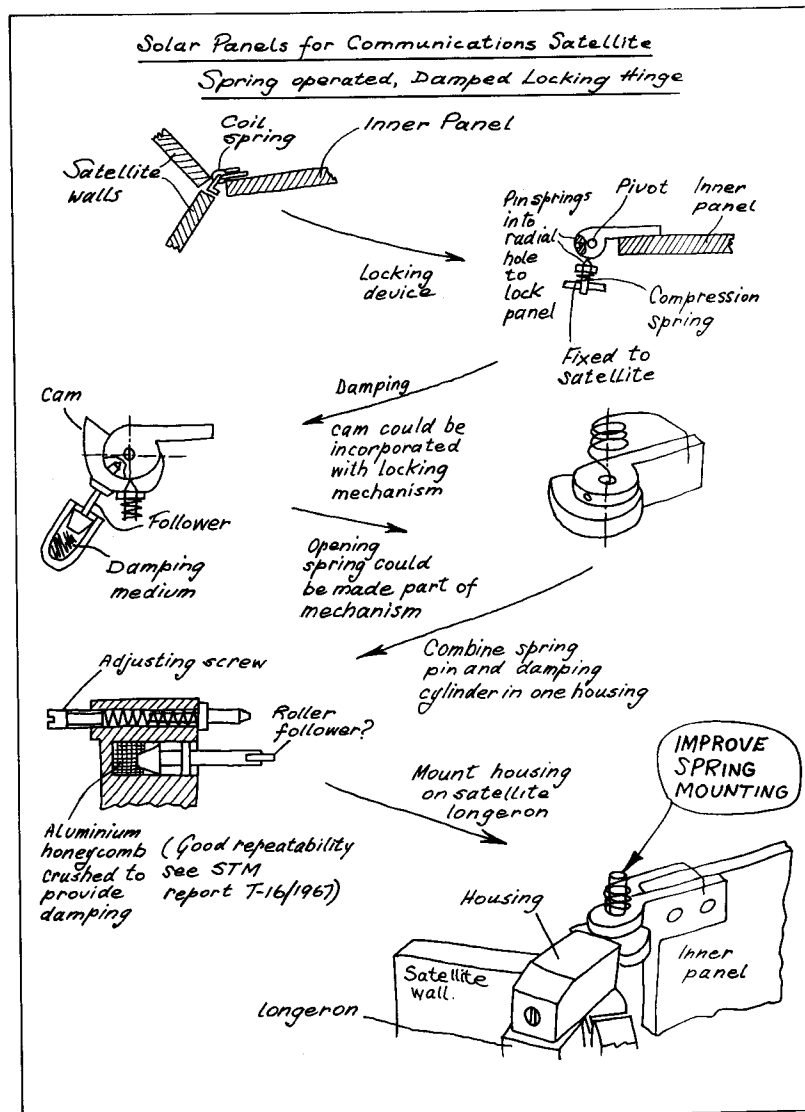 Solar Panels for Communications Satellite
Spring operated, Damped Locking Hinge
Coil
spring
Inner Panel
Satellite
walls
Locking
device
Pin springs
into
radial
hole
to
lock
panel
Pivot
Inner
panel
Compression
spring
Fixed to
satellite
Damping
Cam
cam could be
incorporated
with locking
mechanism
Follower
Damping
medium
Opening
spring could
be made part of
mechanism
Combine spring
pin and damping
cylinder in one housing
Adjusting screw
Roller
follower?
Aluminium
honeycomb
crushed to
provide
damping
(Good repeatability
see STM
report T-16/1967)
Mount housing
on satellite
longeron
IMPROVE
SPRING
MOUNTING
Housing
Inner
panel
Satellite
wall.
longeron